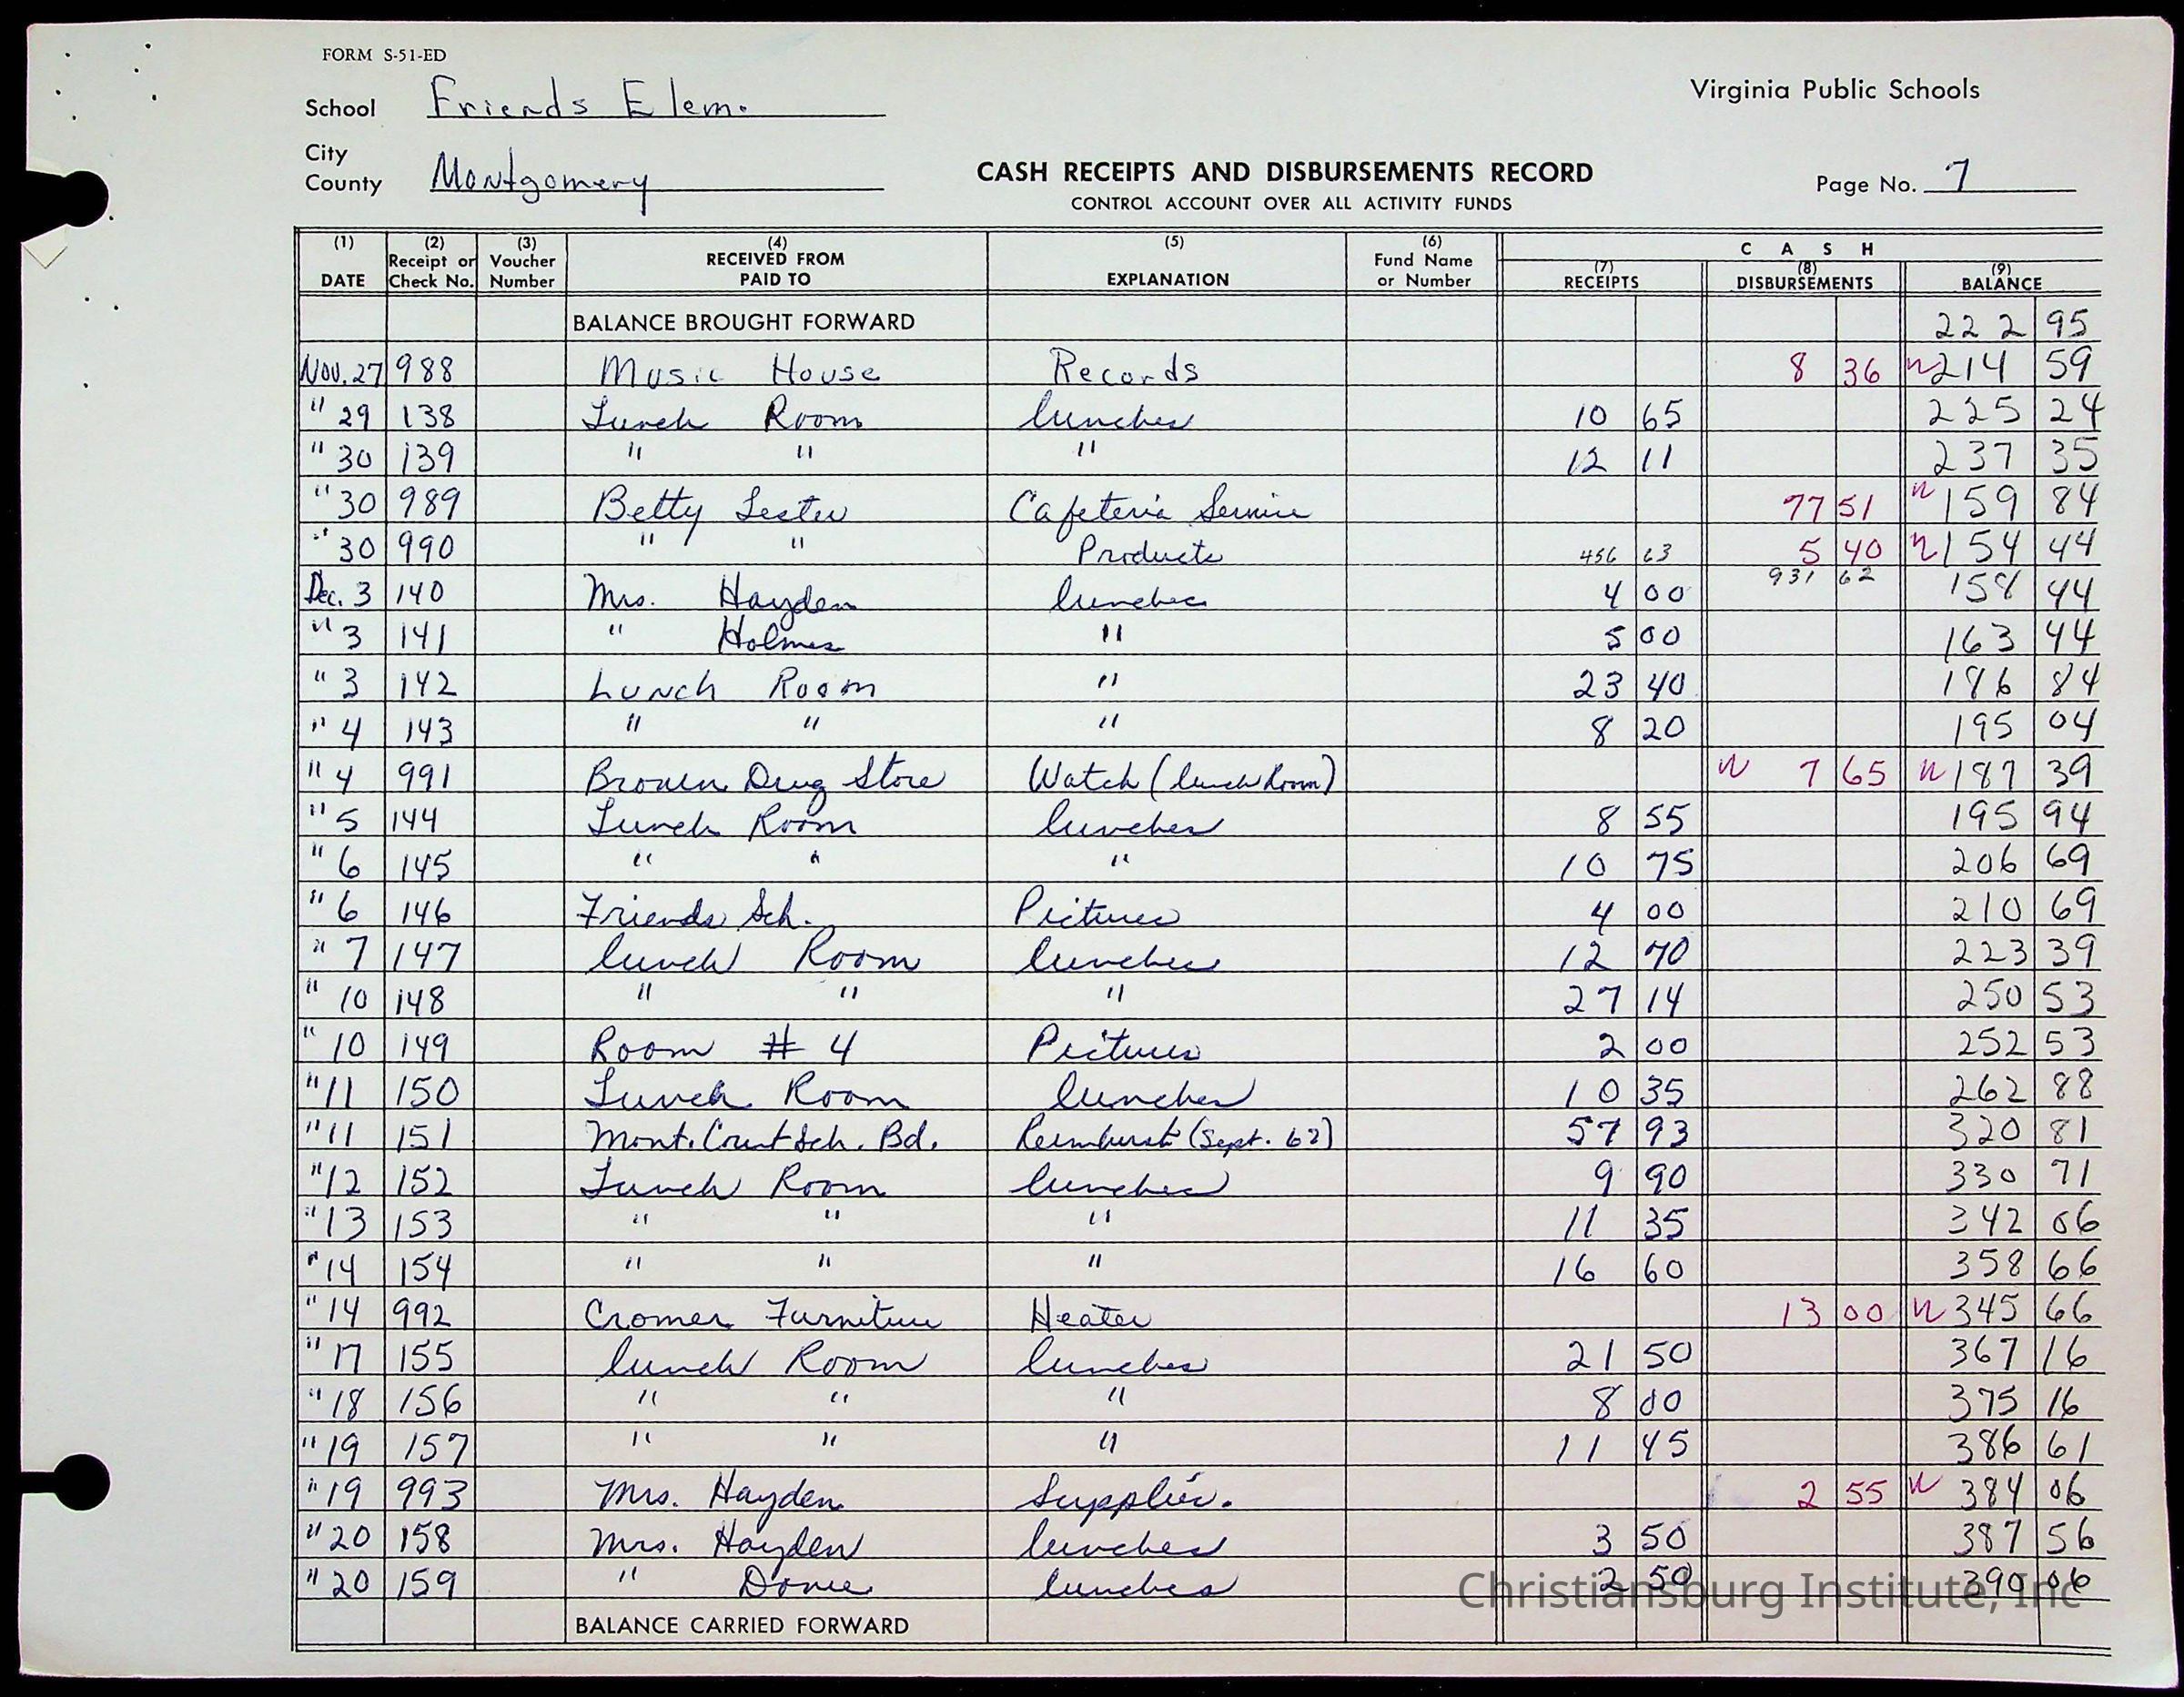 FORM S-51-ED
School Friends Elem.
Virginia Public Schools
City
County Montgomery
CASH RECEIPTS AND DISBURSEMENTS RECORD
CONTROL ACCOUNT OVER ALL ACTIVITY FUNDS
Page No. 7
(1) DATE (2) Receipt or Check No. (3) Voucher Number (4) RECEIVED FROM PAID TO (5) EXPLANATION (6) Fund Name or Number CASH (7) RECEIPTS (8) DISBURSEMENTS (9) BALANCE
BALANCE BROUGHT FORWARD 222 95
Nov. 27 988 Music House Records 8 36 214 59
" 29 138 Lunch Room lunches 10 65 225 24
" 30 139 " " " 12 11 237 35
" 30 989 Betty Lester Cafeteria Service 77 51 159 84
" 30 990 " " Products 456 63 5 40 154 44
931 62
Dec. 3 140 Mrs. Hayden lunches 4 00 158 44
" 3 141 " Holmes " 5 00 163 44
" 3 142 Lunch Room " 23 40 186 84
" 4 143 " " " 8 20 195 04
" 4 991 Brown Drug Store Watch (lunch Room) 7 65 187 39
" 5 144 Lunch Room lunches 8 55 195 94
" 6 145 " " " 10 75 206 69
" 6 146 Friends Sch. Pictures 4 00 210 69
" 7 147 lunch Room lunches 12 70 223 39
" 10 148 " " " 27 14 250 53
" 10 149 Room # 4 Pictures 2 00 252 53
" 11 150 Lunch Room lunches 10 35 262 88
" 11 151 Mont. Count Sch. Bd. Reimburst (Sept. 62) 57 93 320 81
" 12 152 Lunch Room lunches 9 90 330 71
" 13 153 " " " 11 35 342 06
" 14 154 " " " 16 60 358 66
" 14 992 Cromer Furniture Heater 13 00 345 66
" 17 155 lunch Room lunches 21 50 367 16
" 18 156 " " " 8 00 375 16
" 19 157 " " " 11 45 386 61
" 19 993 Mrs. Hayden Supplies. 2 55 384 06
" 20 158 Mrs. Hayden lunches 3 50 387 56
" 20 159 " lunches 2 50 390 06
Christiansburg Institute, Inc
BALANCE CARRIED FORWARD